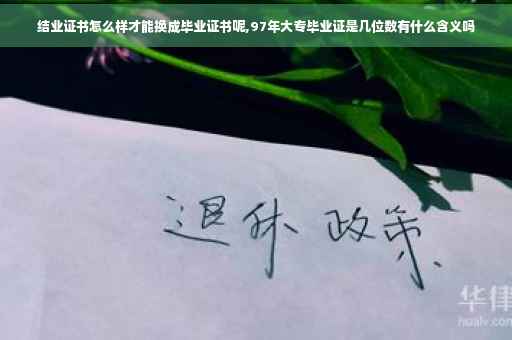 结业证书怎么样才能换成毕业证书呢,97年大专毕业证是几位数有什么含义吗
退休 政策
华律
hualv.com